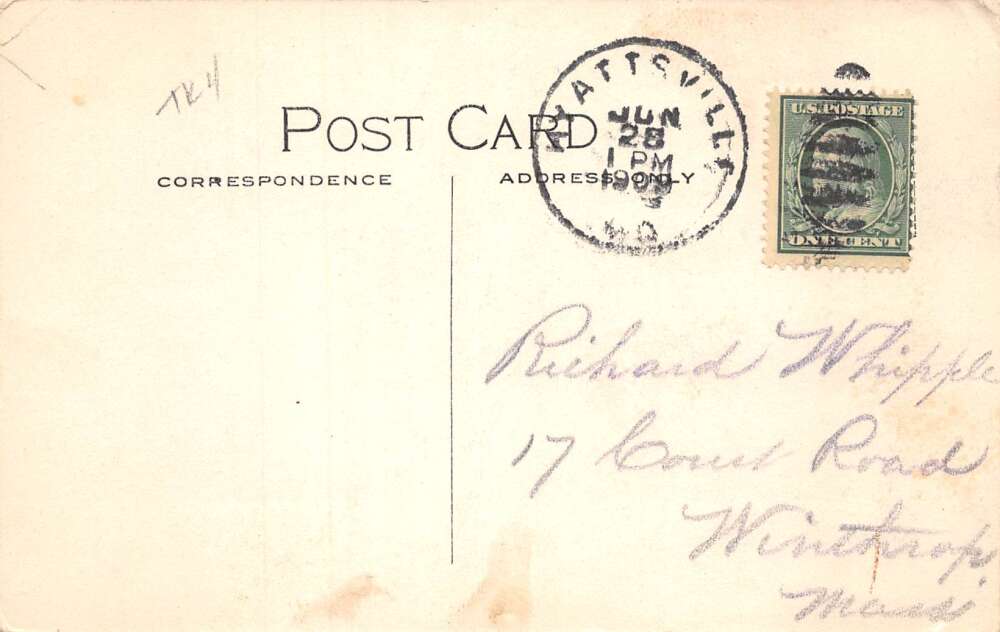 TK4
POST CARD
CORRESPONDENCE
ADDRESS ONLY
HYATTSVILLE
JUN
28
1 PM
1909
MD
U.S. POSTAGE
ONE CENT
Richard Whipple
17 Court Road
Winthrop
Mass